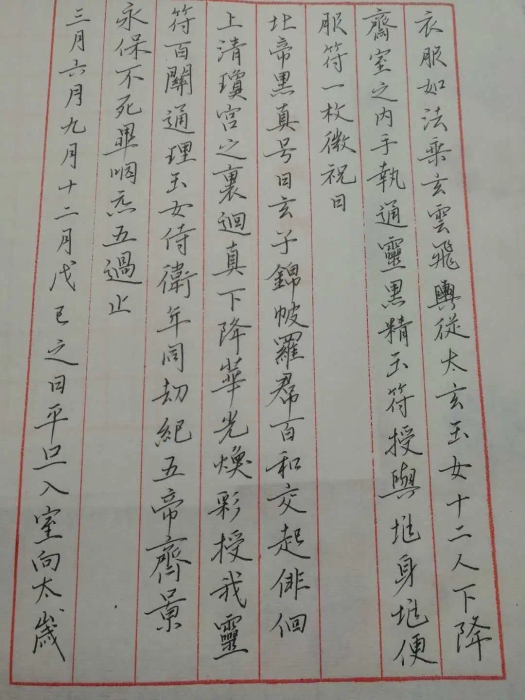 衣服如法乘玄雲飛輿從太玄玉女十二人下降
齋室之内手執通靈黑精玉符授與垗身垗便
服符一枚微祝曰
北帝黑真号曰玄子錦帔羅裙百和交起俳佪
上清瓊宫之裏迴真下降華光煥彩授我靈
符百關通理玉女侍衛年同劫紀五帝齊景
永保不死畢咽炁五過止
三月六月九月十二月戊己之日平旦入室向太歲